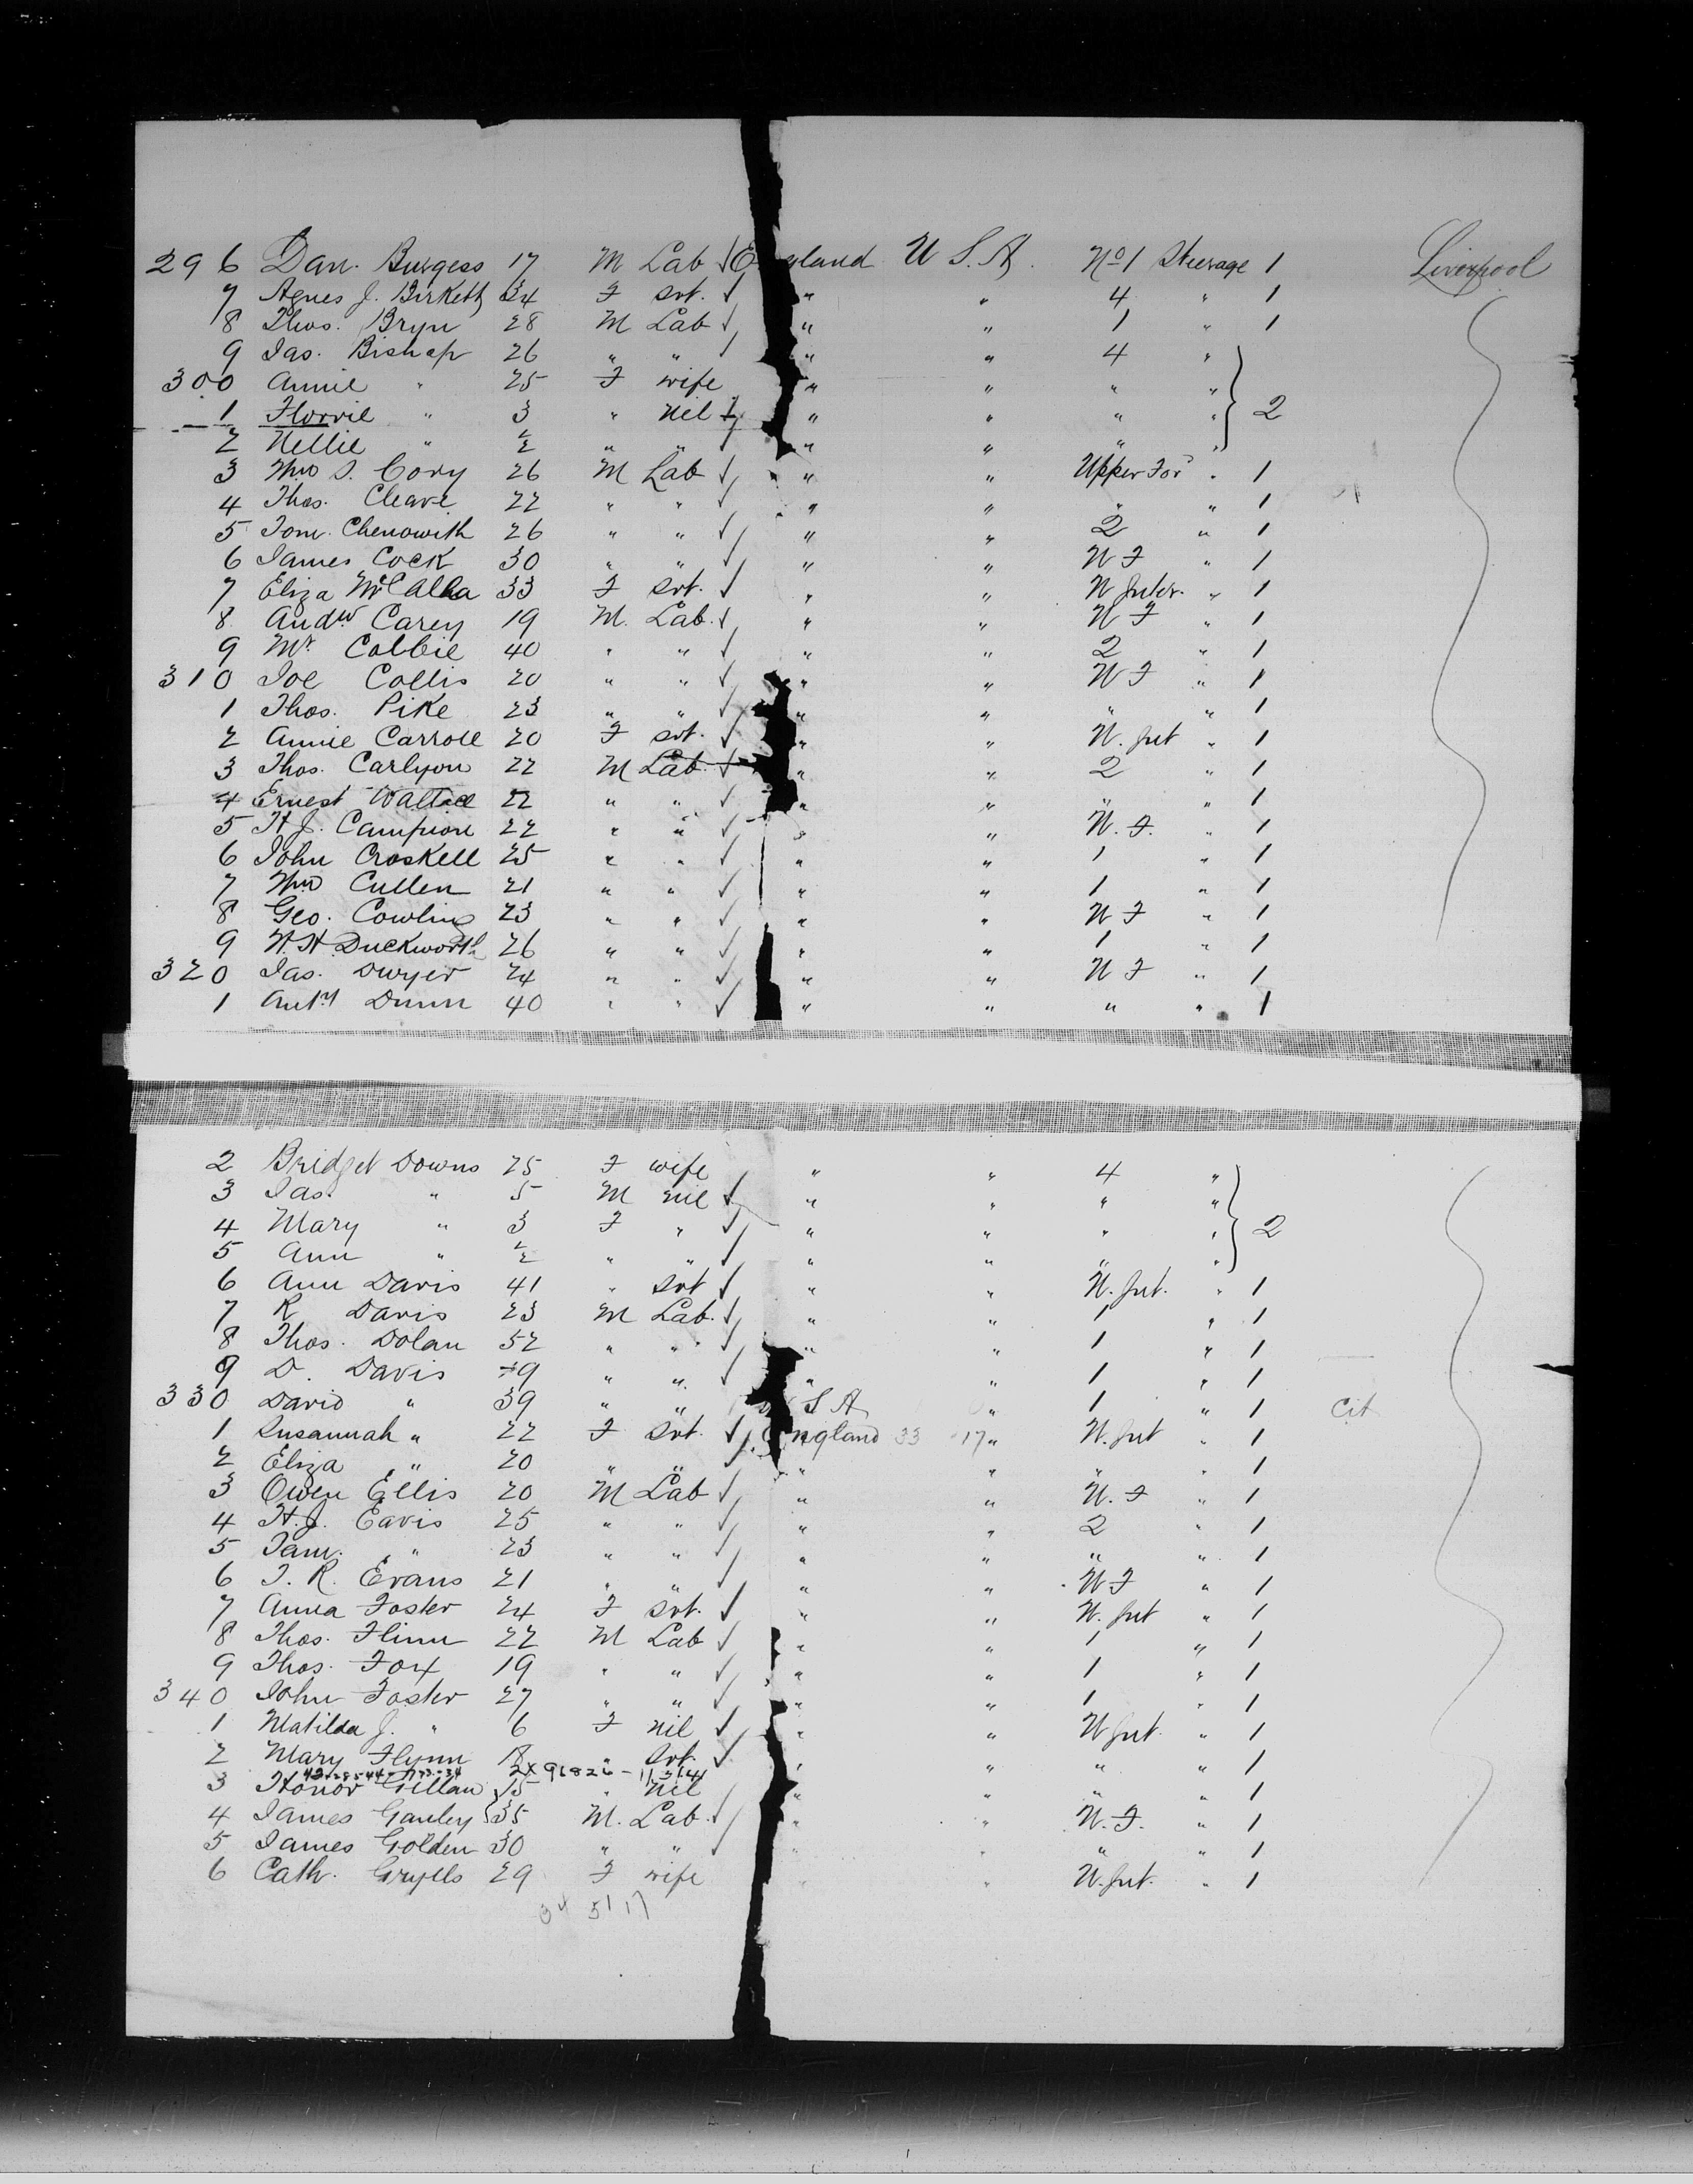 296 Dan. Burgess 17 M Lab England U.S.A. No 1 Steerage 1 Liverpool
7 Agnes J. Birkett 34 F svt. " " 4 " 1
8 Thos. Bryn 28 M Lab " " 1 " 1
9 Jas. Bishop 26 " " " " 4 "
300 Annie " 25 F wife " " " "
1 Florrie " 3 " nil " " " " 2
2 Nellie " ½ " " " " " "
3 Wm S. Cory 26 M Lab " " Upper For " 1
4 Thos. Cleave 22 " " " " " " 1
5 Tom. Chenowith 26 " " " " 2 " 1
6 James Cock 30 " " " " U F " 1
7 Eliza McCalla 33 F svt. " " U Inter. " 1
8 Andw Carey 19 M. Lab. " " U F " 1
9 Mr. Cobbie 40 " " " " 2 " 1
310 Joe Collis 20 " " " " U F " 1
1 Thos. Pike 23 " " " " " " 1
2 Annie Carroll 20 F svt. " " U. Int " 1
3 Thos. Carlyon 22 M Lab. " " 2 " 1
4 Ernest Wallace 22 " " " " " " 1
5 H J. Campion 22 " " " " U. F. " 1
6 John Croskell 25 " " " " 1 " 1
7 Wm Cullen 21 " " " " 1 " 1
8 Geo. Cowling 23 " " " " U F " 1
9 W.H. Duckworth 26 " " " " 1 " 1
320 Jas. Dwyer 24 " " " " U F " 1
1 Anty Dunn 40 " " " " " " 1
2 Bridget Downs 25 F wife " " 4 "
3 Jas. " 5 M nil " " " "
4 Mary " 3 F " " " " " 2
5 Ann " ½ " " " " " "
6 Ann Davis 41 " svt " " U. Int. " 1
7 R Davis 23 M Lab. " " 1 " 1
8 Thos. Dolan 52 " " " " 1 " 1
9 D. Davis 49 " " " " 1 " 1
330 David " 39 " " S A " 1 " 1 Cit
1 Susannah " 22 F svt. England 33 17 " U. Int " 1
2 Eliza " 20 " " " " " " 1
3 Owen Ellis 20 M Lab " " U. F " 1
4 H. J. Eavis 25 " " " " 2 " 1
5 Sam. " 23 " " " " " " 1
6 T. R. Evans 21 " " " " U F " 1
7 Anna Foster 24 F svt. " " U. Int " 1
8 Thos. Flinn 22 M Lab " " 1 " 1
9 Thos. Fox 19 " " " " 1 " 1
340 John Foster 27 " " " " 1 " 1
1 Matilda J. " 6 F nil " " U Int. " 1
2 Mary Flynn 18 " svt. " " " " 1
2X 91826
3 Honor Gillan 15 " nil " " " " 1
4 James Ganley 35 M. Lab. " " U. F. " 1
5 James Golden 30 " " " " " " 1
6 Cath. Grylls 29 F wife " " U. Int. " 1
34 51 17